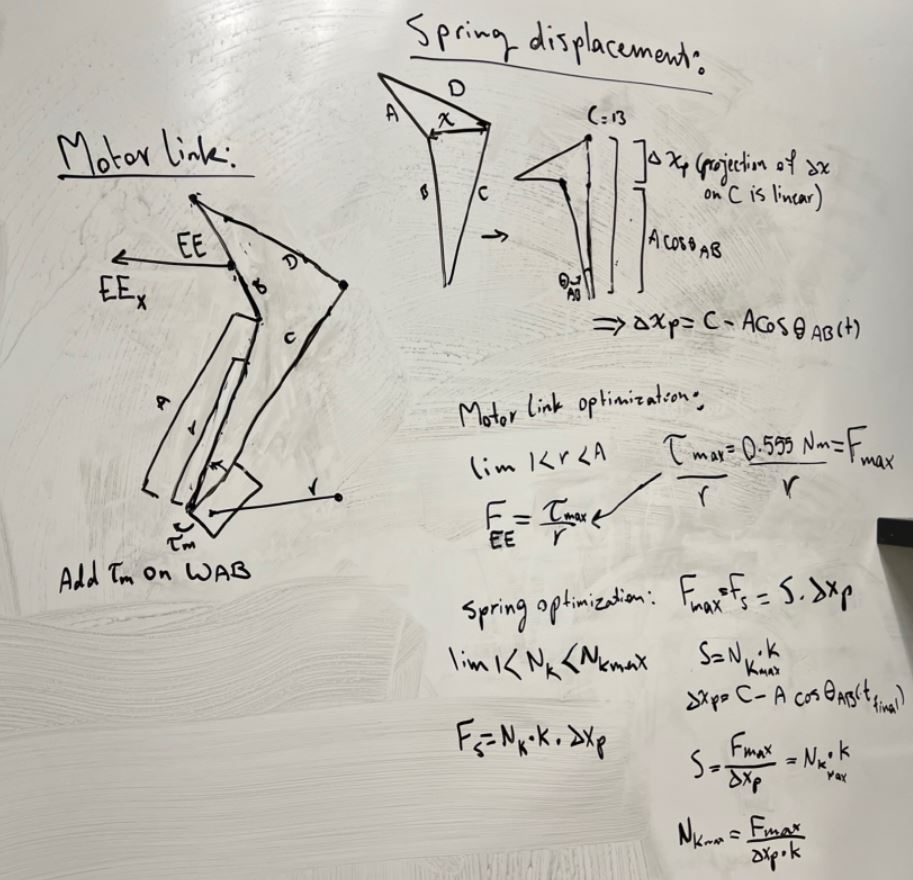 Spring displacement:
D
A
x
B
C
→
C=B
Δxp (projection of Δx
on C is linear)
A cosθAB
θAB
⇒ Δxp = C - A cosθAB(t)
Motor link:
EE
EEx
D
B
C
A
r
r
τm
Add τm on WAB
Motor link optimization:
lim 1<r<A
τmax/r = 0.555 Nm/r = Fmax
FEE = τmax/r
Spring optimization: Fmax=Fs = S.Δxp
lim 1<Nk<Nkmax
S=Nkmax·k
Δxp= C - A cosθAB(tfinal)
Fs=Nk·k.Δxp
S= Fmax/Δxp = Nkmax·k
Nkmax = Fmax/Δxp·k